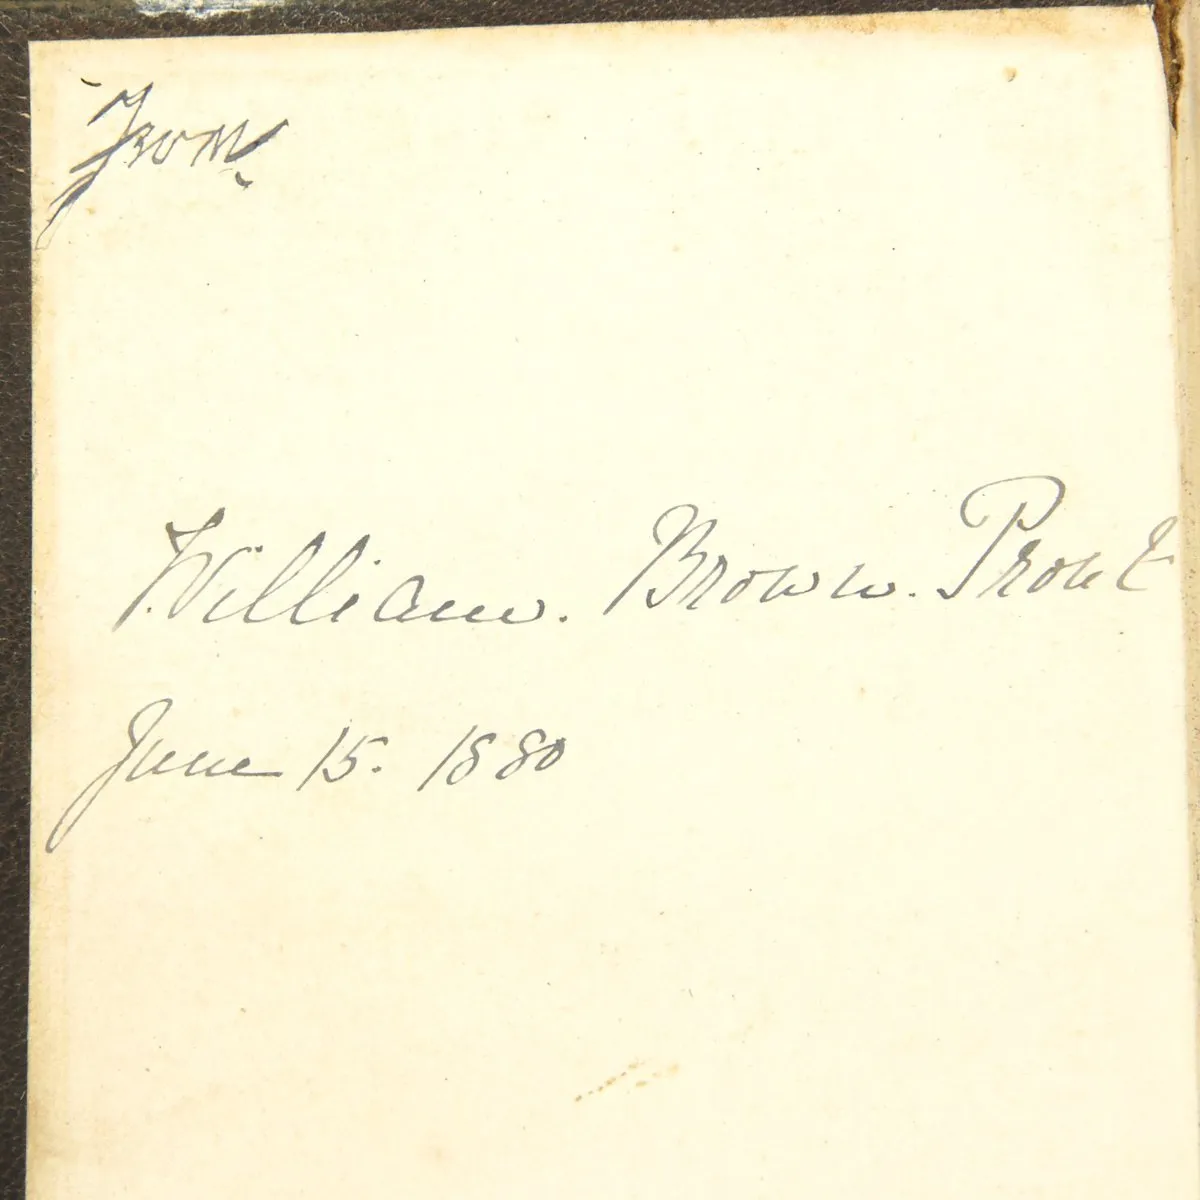 From
William. Brown. Prout
June 15. 1880